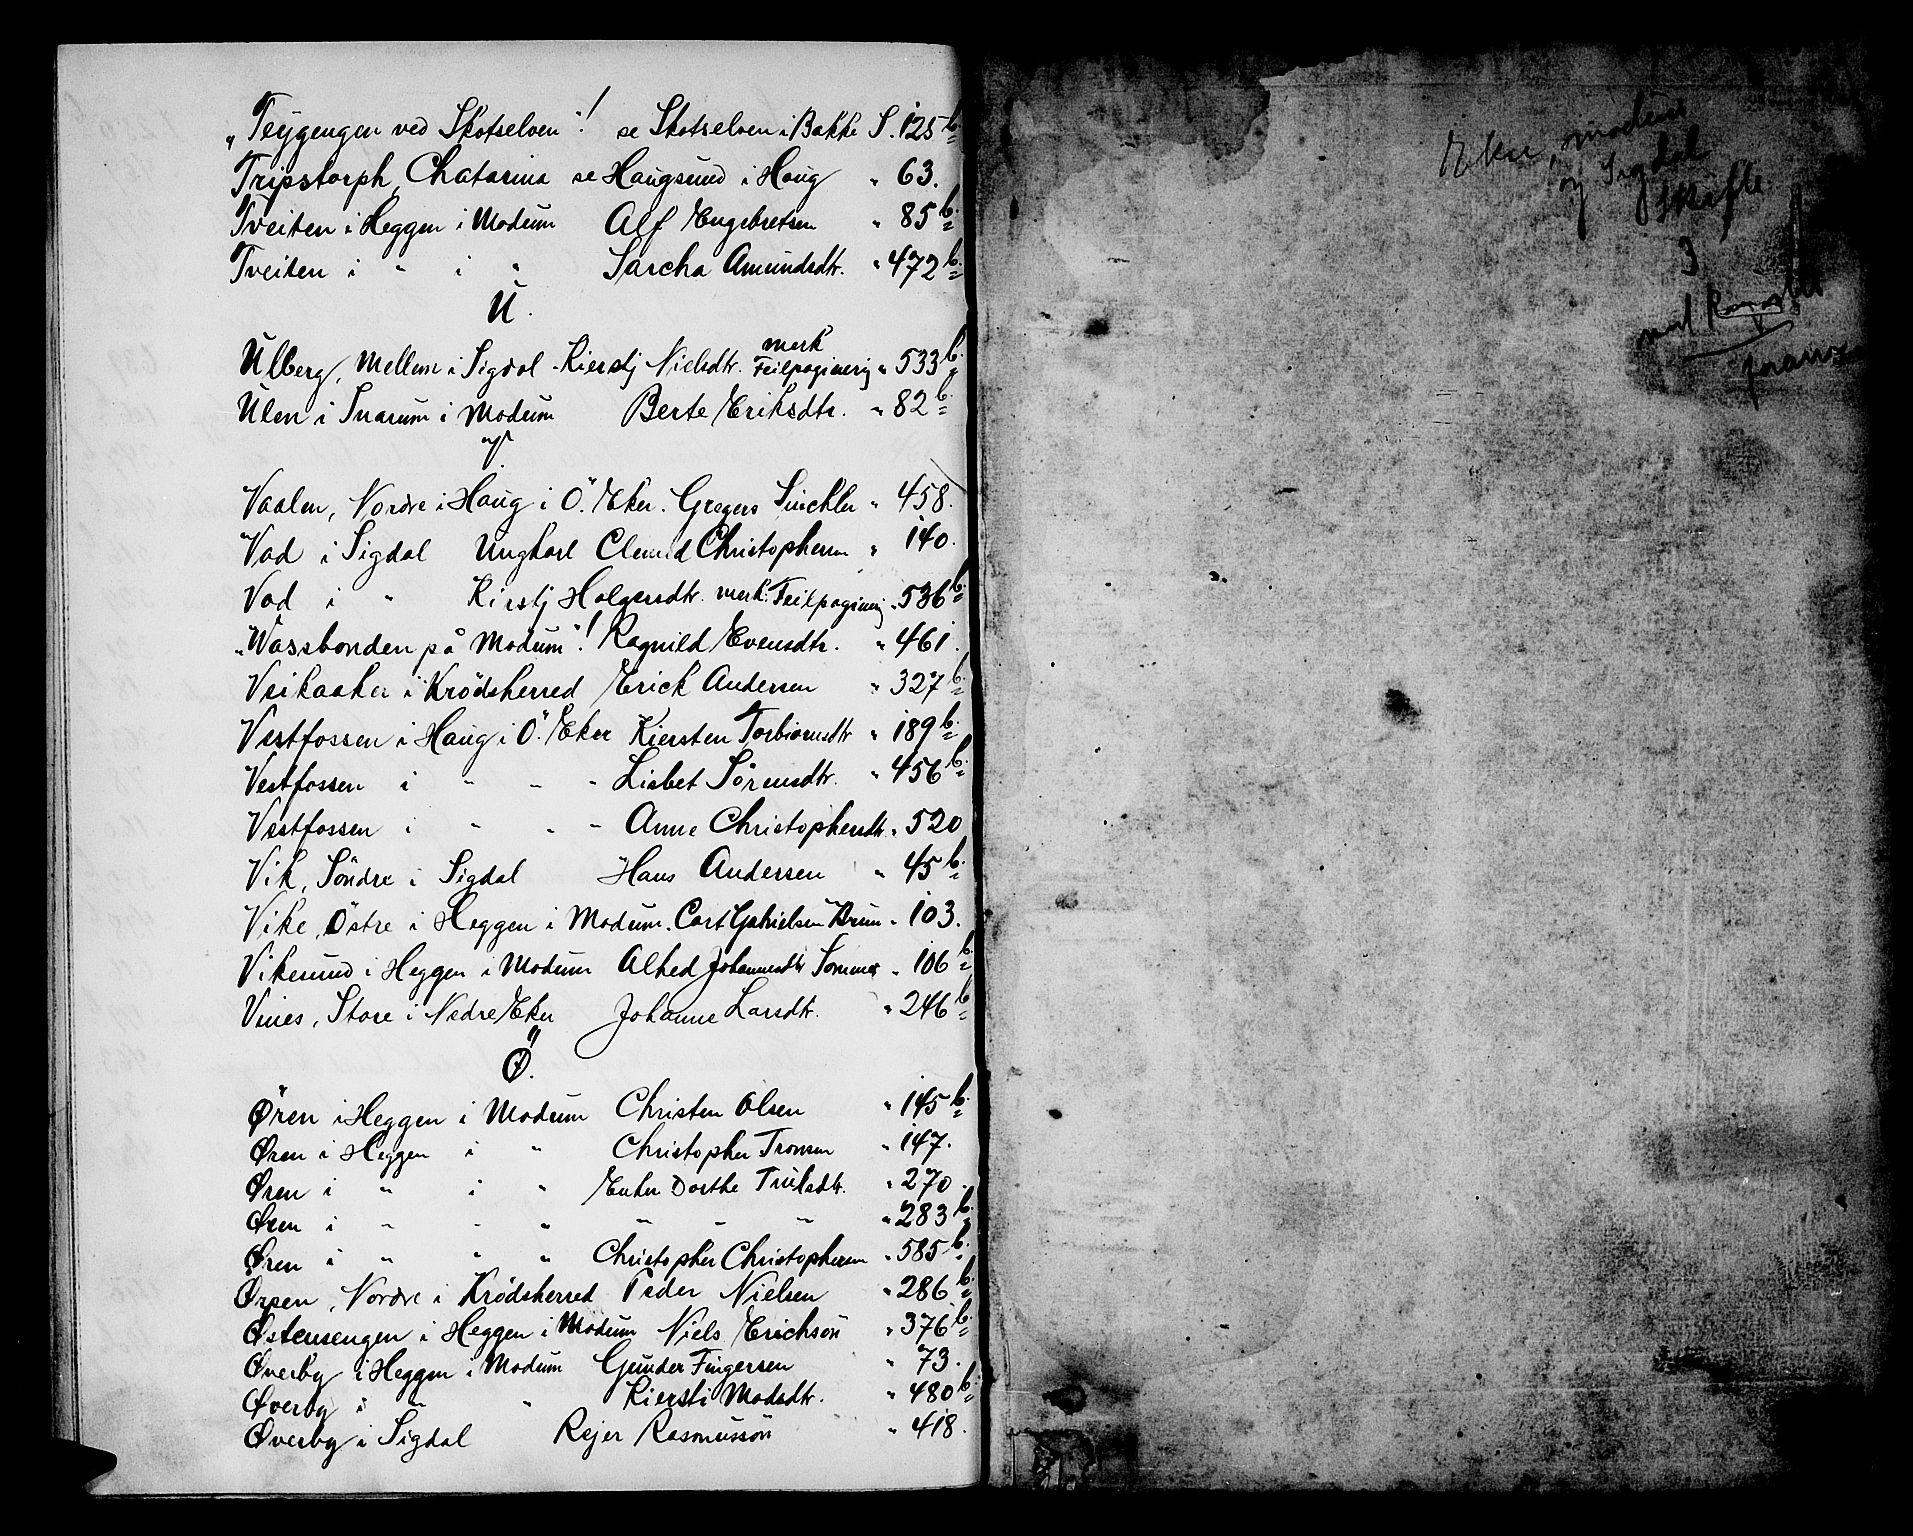 „Teygengen ved Skotselven"! se Skotselven i Bakke S. 125 b.
Tripstorph, Chatarina se Haugsund i Haug " 63.
Tveiten i Heggen i Modum Alf Engebretsen " 85 b.
Tveiten i " i " Sarcha Amundsdtr. " 472 b.
U.
Ulberg, Mellem i Sigdal Kierstj Nielsdtr. merk Feilpaginerig " 533 b.
Ulen i Snarum i Modum Berte Eriksdtr. " 82 b.
V
Vaalen, Nordre i Haug i Ö. Eker. Gregers Sinckler " 458.
Vad i Sigdal Ungkarl Clemed Christophersen " 140.
Vad i " Kirstj Holgersdtr. merk: Feilpaginerig " 536 b.
„Wassbonden på Modum"! Ragnild Evensdtr. " 461.
Veikaaker i Krödsherred Erick Andersen " 327 b.
Vestfossen i Haug i Ö. Eker Kiersten Torbiornsdtr " 189 b.
Vestfossen i " " " Lisbet Sörensdtr. " 456 b.
Vestfossen i " " " Anne Christophersdtr. " 520
Vik, Söndre i Sigdal Hans Andersen " 45 b.
Vike, Östre i Heggen i Modum. Cort Gabrielsen Brun " 103.
Vikesund i Heggen i Modum Alhed Johannesdtr Sommer " 106 b
Vines, Store i Nedre Eker Johanne Larsdtr. " 246 b
Ö.
Øren i Heggen i Modum Christen Olsen " 145 b.
Øren i Heggen i " Christopher Tronsen " 147.
Øren i " i " Enker Dorthe Trulsdtr. " 270.
Øren i " " " " " " " 283 b.
Øren i " " " Christopher Christophersen " 585 b.
Ørpen, Nordre i Krödsherred Peder Nielsen " 286 b.
Østensengen i Heggen i Modum Niels Erichsön " 376 b.
Øverby i Heggen i Modum Gunder Fingersen " 73.
Øverby i " " Kiersti Madsdtr. " 480 b.
Øverby i Sigdal Rejer Rasmussön " 418.
Eker, Modum
og Sigdal
Skifte
3
med Register